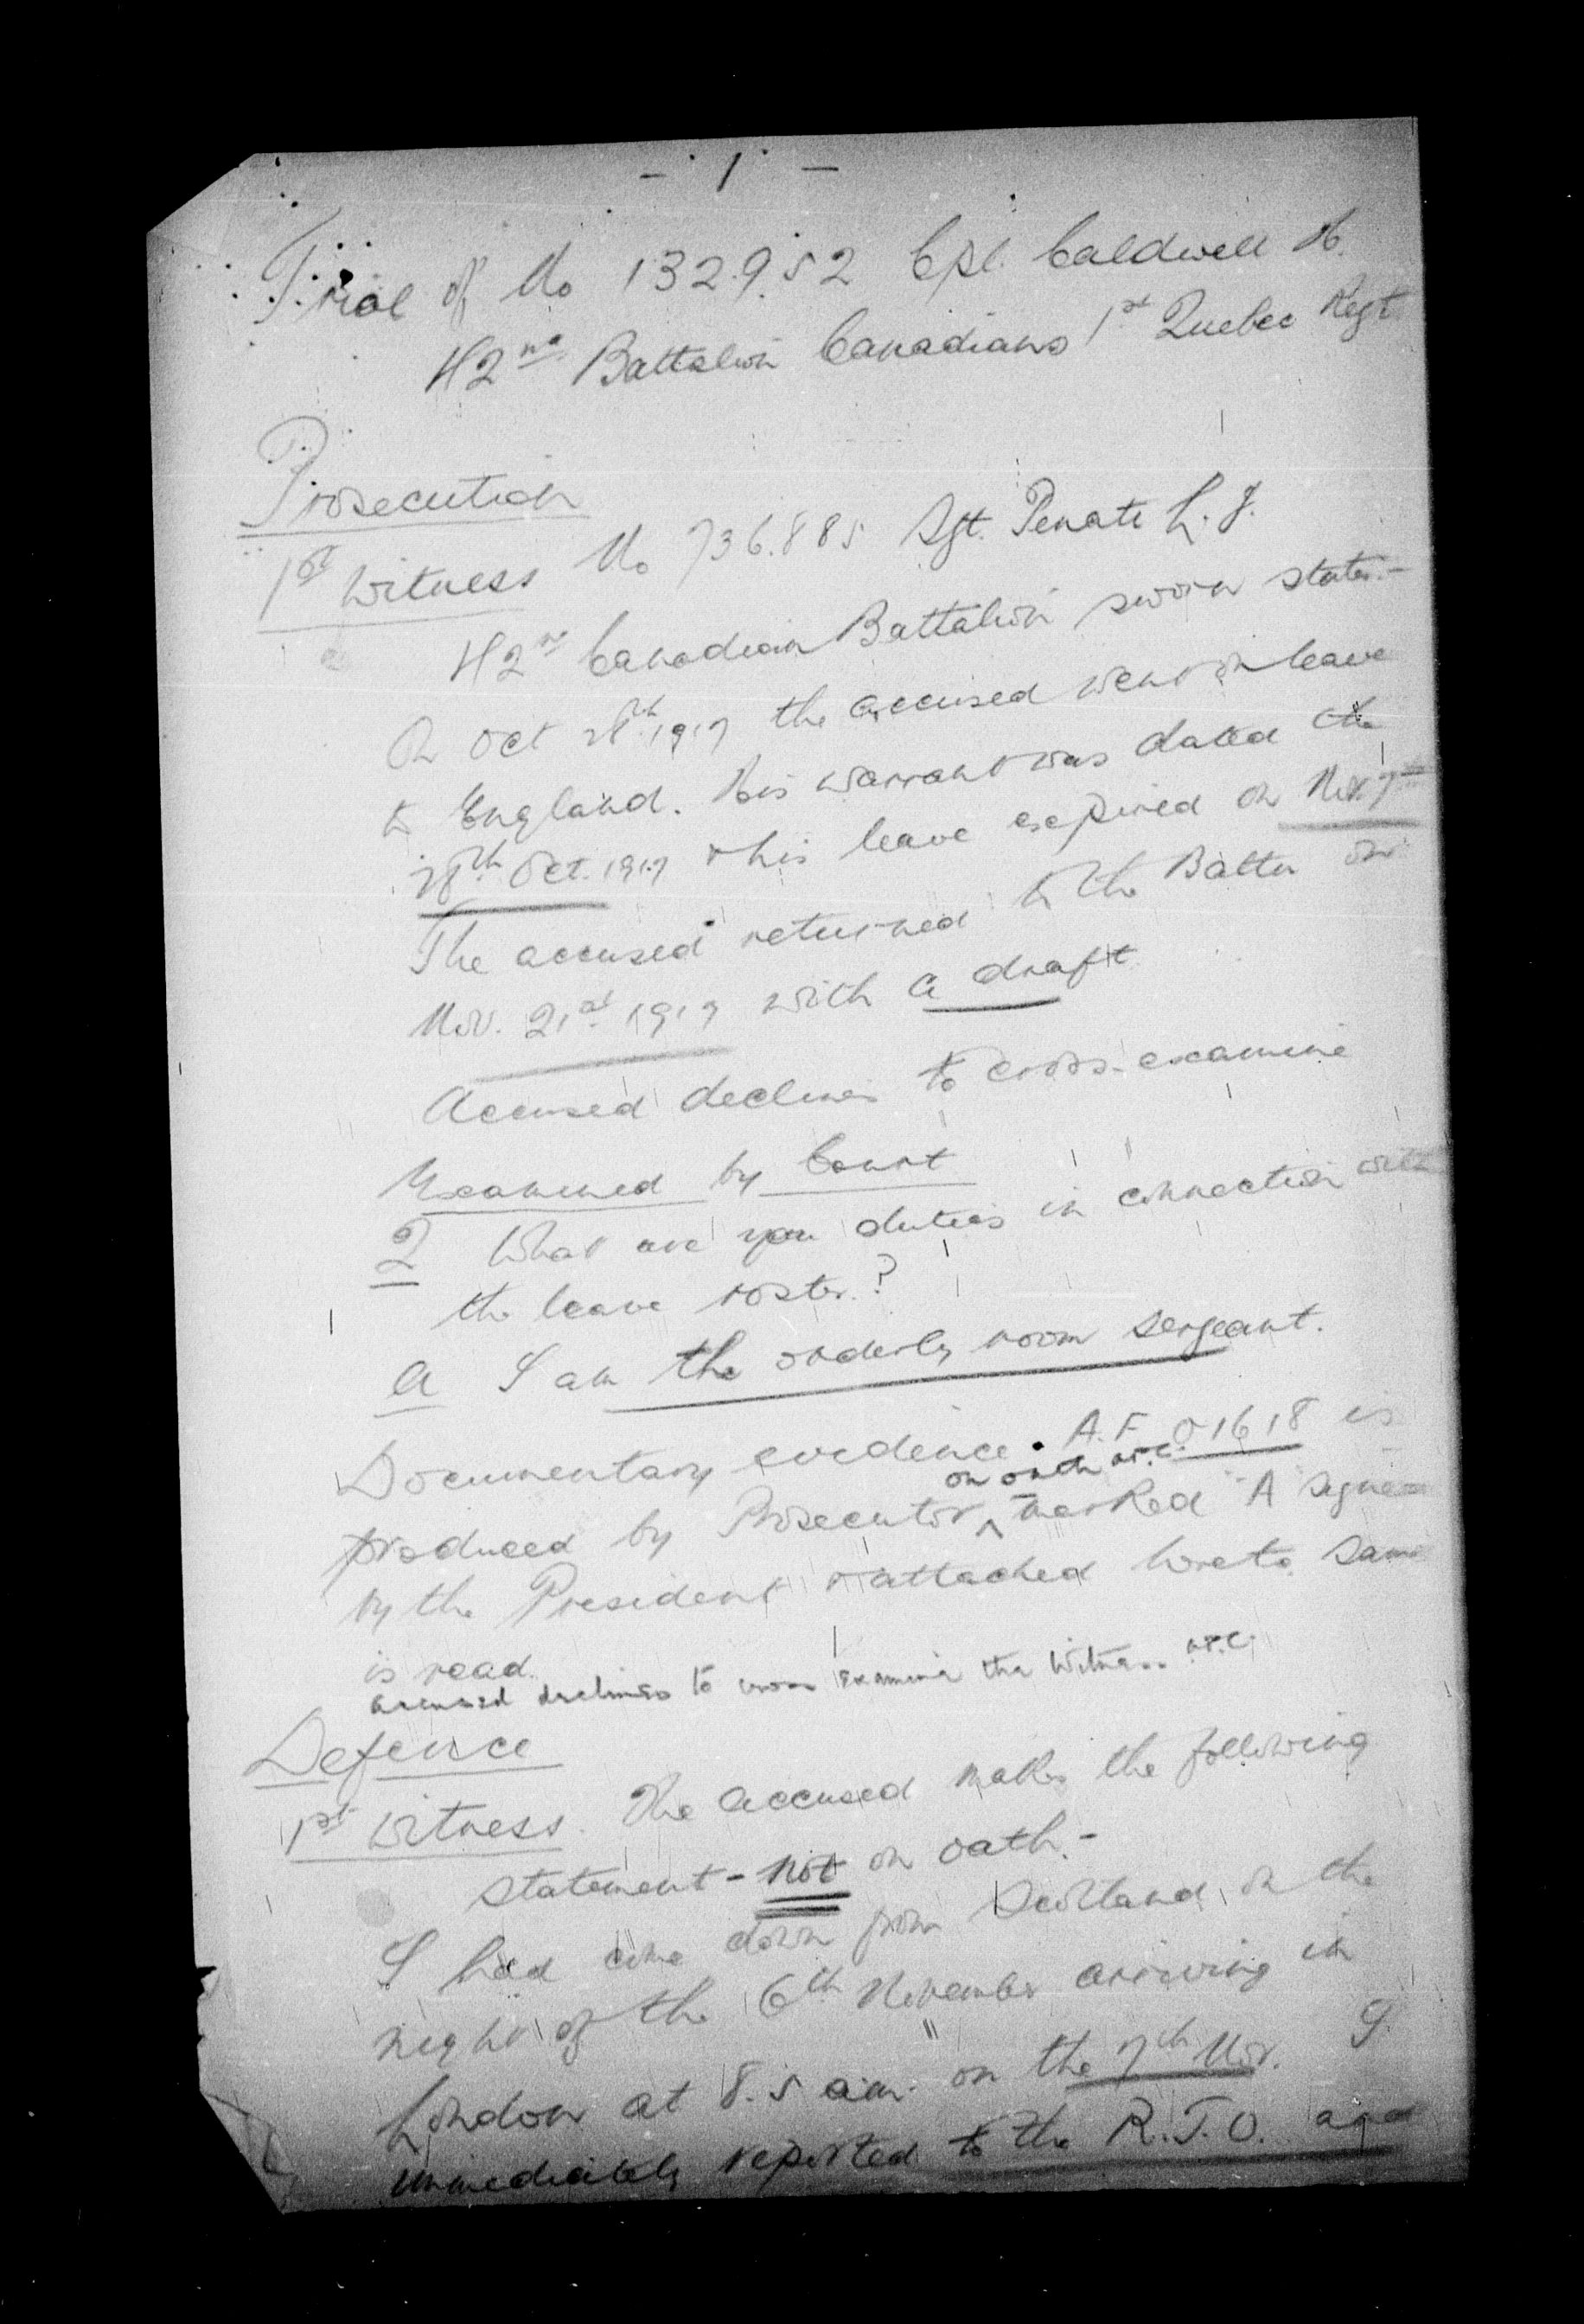 - 1 -
Trial of No 132.952 Cpl. Caldwell H.
42nd Battalion Canadians 1st Quebec Regt
Prosecution
1st Witness No 736.885 Sgt. Penate L. J.
42nd Canadian Battalion sworn states:-
On Oct 28th 1917 the accused went on leave
to England. His warrant was dated the
28th Oct. 1917 & his leave expired on Nov. 7th
The accused returned to the Battn on
Nov. 21st 1917 with a draft
Accused declines to cross-examine
Examined by Court
Q What are you duties in connection with
the leave roster?
A I am the orderly room sergeant.
Documentary evidence. A.F. 01618 is
on oath
produced by Prosecutor ^ marked "A" signed
by the President & attached hereto same
is read.
accused declines to cross examine the witness
Defence
1st Witness. The accused makes the following
statement - not on oath.-
I had come down from Scotland on the
night of the 6th November arriving in
London at 8.5 a.m. on the 7th Nov. I
immediately reported to the R.T.O. and